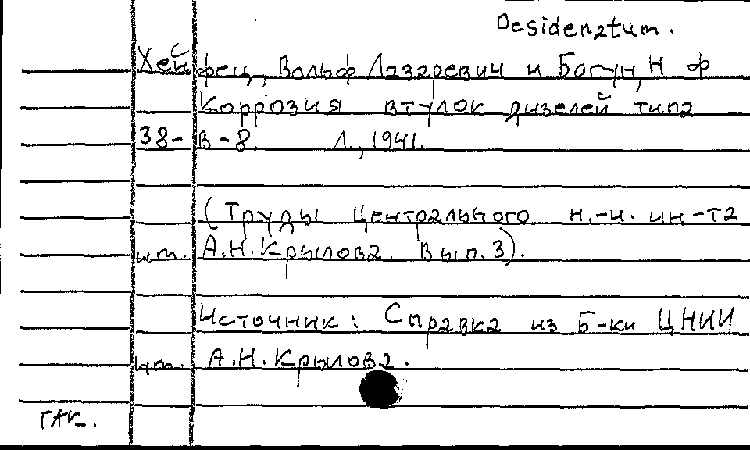 Desideratum.
Хейфец, Вольф Лазаревич и Богун, Н Ф
Коррозия втулок дизелей типа
38-В-8. Л., 1941.
(Труды Центрального н.-и. ин-та
им. А.Н.Крылова. Вып.3).
Источник: Справка из Б-ки ЦНИИ
им. А.Н.Крылова.
ГАК.